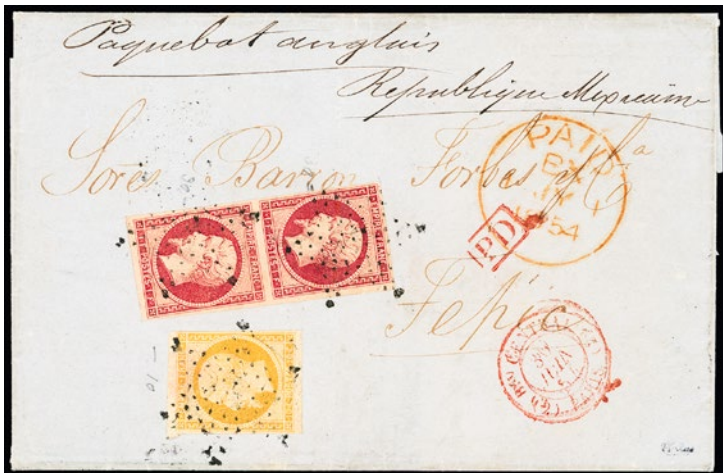 Paquebot anglais
Republique Mexicaine
Sores Barron Forbes y Ca
PAID
1854
PD
Tepic
JUIN